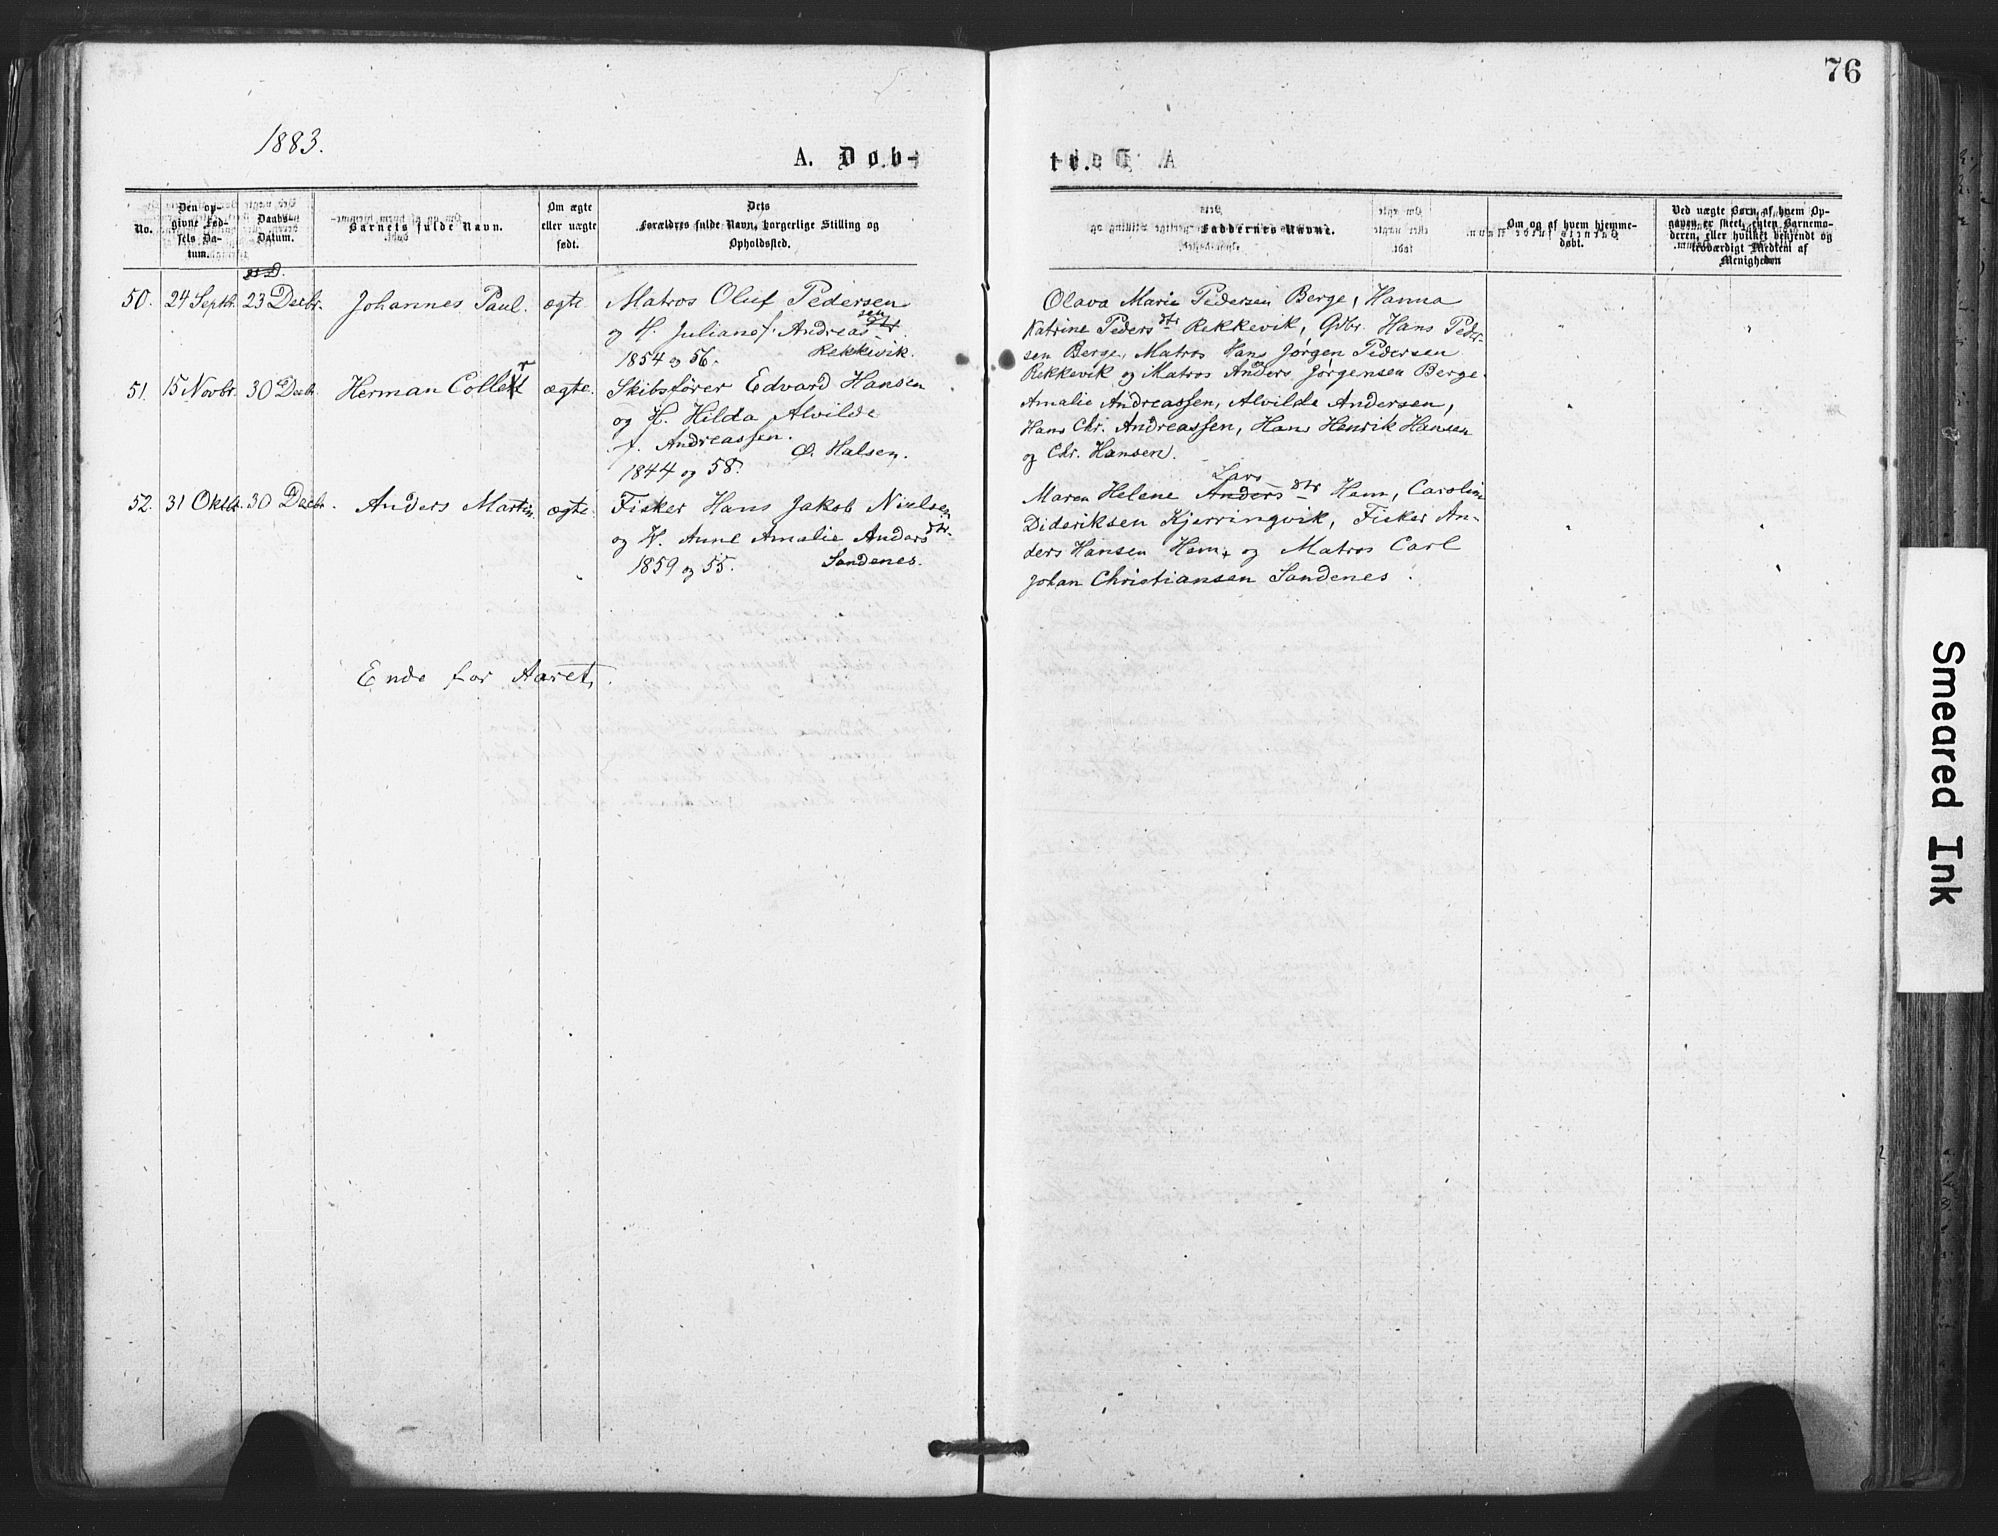 76
1883.
A. Døb-
te.
No.
Den op-
givne Fød-
sels Da-
tum.
Daabs-
Datum.
Barnets fulde Navn.
Om ægte
eller uægte
født.
Dets
Forældres fulde Navn, borgerlige Stilling og
Opholdssted.
Faddernes Navne.
Om og af hvem hjemme-
døbt.
Ved uægte Børn, af hvem Op-
gaven er skeet, enten Barnemo-
deren, eller hvilket bekjendt og
troværdigt Medlem af
Menigheden
50. 24 Septbr. 23 Decbr. Johannes Paul. ægte
Matros Oluf Pedersen
og H. Juliane f. Andreassen
Rekkevik.
1854 og 56.
Olava Marie Pedersen Berge, Hanna
Katrine Pedersdtr Rekkevik, Gdbr. Hans Peder-
sen Berge, Matros Hans Jørgen Pedersen
Rekkevik og Matros Anders Jørgensen Berge.
51. 15 Novbr. 30 Decbr. Herman Collett ægte.
Skibsfører Edvard Hansen
og H. Hilda Alvilde
f. Andreassen.
Ø. Halsen.
1844 og 58.
Amalie Andreassen, Alvilde Andersen,
Hans Chr. Andreassen, Hans Henrik Hansen
og Chr. Hansen.
52. 31 Oktbr. 30 Decbr. Anders Martin. ægte.
Fisker Hans Jakob Nielsen
og H. Anne Amalie Andersdtr.
1859 og 55. Sandenes.
Lars
Maren Helene Anders dtr Ham, Caroline
Dideriksen Kjerringvik, Fisker An-
ders Hansen Ham, og Matros Carl
Johan Christiansen Sandenes.
Ende for Aaret.
Smeared Ink